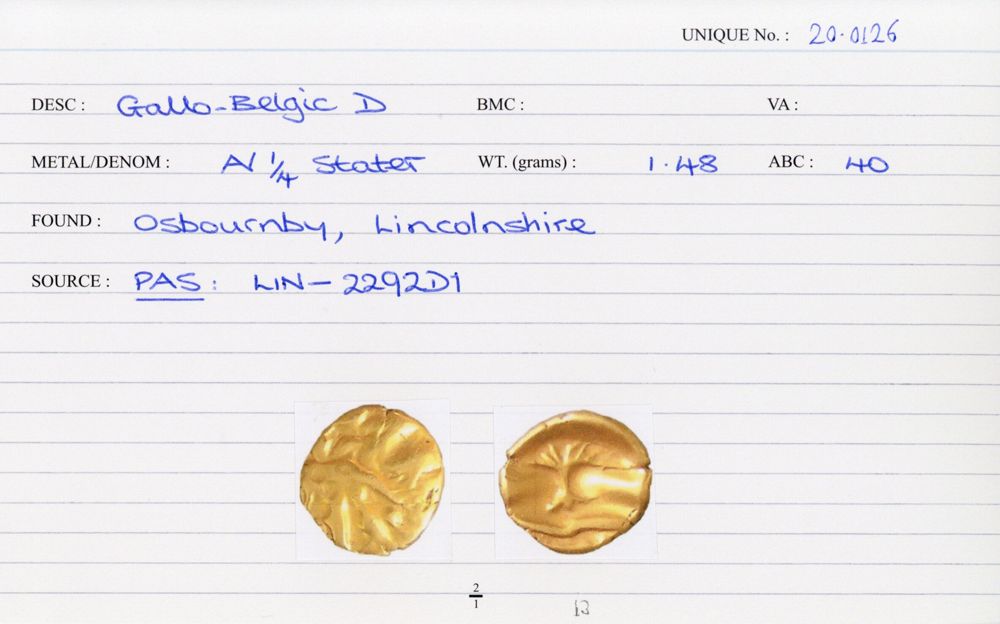 UNIQUE No. : 20·0126
DESC : Gallo-Belgic D BMC : VA :
METAL/DENOM : AV 1/4 Stater WT. (grams) : 1·48 ABC : 40
FOUND : Osbournby, Lincolnshire
SOURCE : PAS: LIN-2292D1
2/1